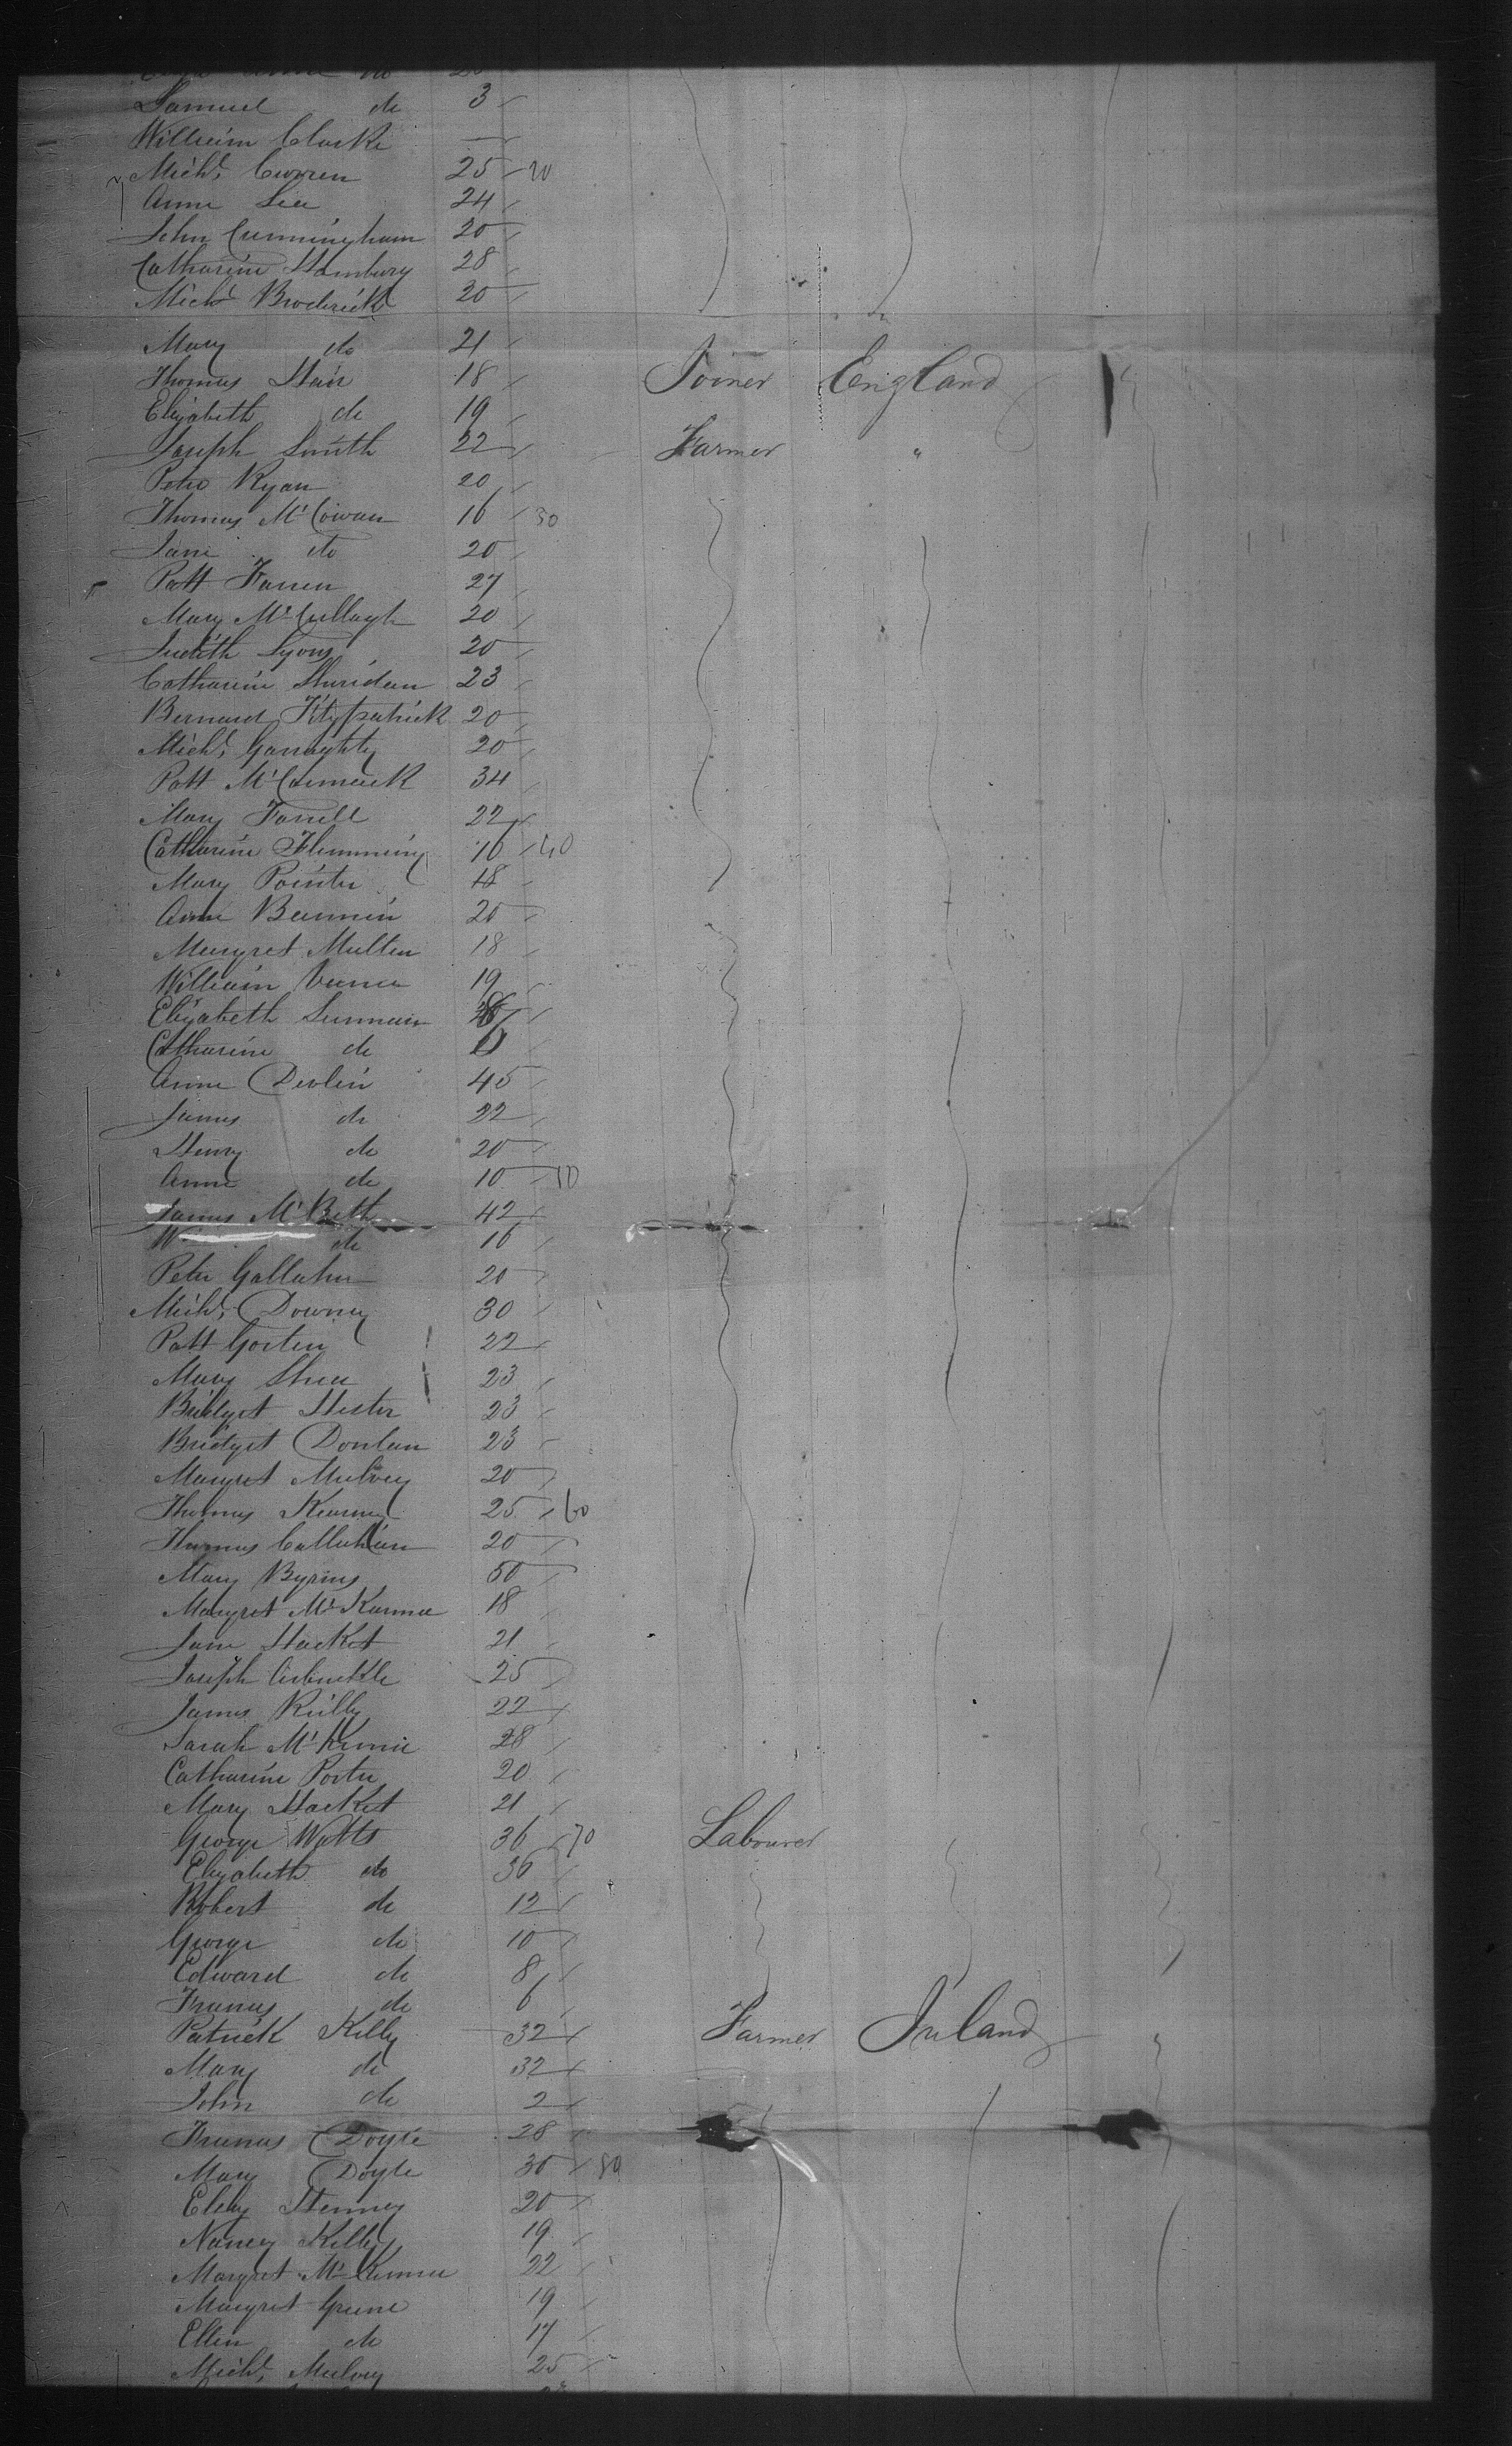 Samuel do 3
William Clarke —
Michl. Curren 25 20
Anne Lee 24
John Cunningham 20
Catharine Hambury 28
Michl Broderick 20
Mary do 21
Thomas Hair 18 Joiner England
Elizabeth do 19
Joseph Smith 22 Farmer "
Peter Ryan 20
Thomas McCowan 16 30
Jane do 20
Patt Farren 27
Mary McCullagh 20
Judith Lyons 20
Catharine Sheridan 23
Bernard Fitzpatrick 20
Michl. Garraghty 20
Patt McCormick 34
Mary Farrell 22
Catharine Flemming 16 40
Mary Pointer 18
Anne Bannin 20
Margret Mullen 18
William 19
Elizabeth
Catharine do
Anne Devlin 45
James do 22
Henry do 20
Anne do 10 50
James McBeth 42
do 16
Peter Gallaher 20
Michl. Downey 30
Patt Gorten 22
Mary Shea 23
Bridget Hester 23
Bridget Donlan 23
Margret Mulvey 20
Thomas Kearney 25 60
Thomas Callahan 20
Mary Byrins 50
Margret McKanna 18
Jane Hacket 21
Joseph Arbuckle 25
James Reilly 22
Sarah McKennie 28
Catharine Porter 20
Mary Hacket 21
George Watts 36 70 Labourer
Elizabeth do 36
Robert do 12
George do 10
Edward do 8
Francis do 6
Patrick Kelly 32 Farmer Ireland
Mary do 32
John do 2
Francis Doyle 28
Mary Doyle 30 80
Henney 20
Nancy Kelly 19
Margret McKenna 22
Margret Greene 19
Ellen do 17
Michl. Mulvey 25